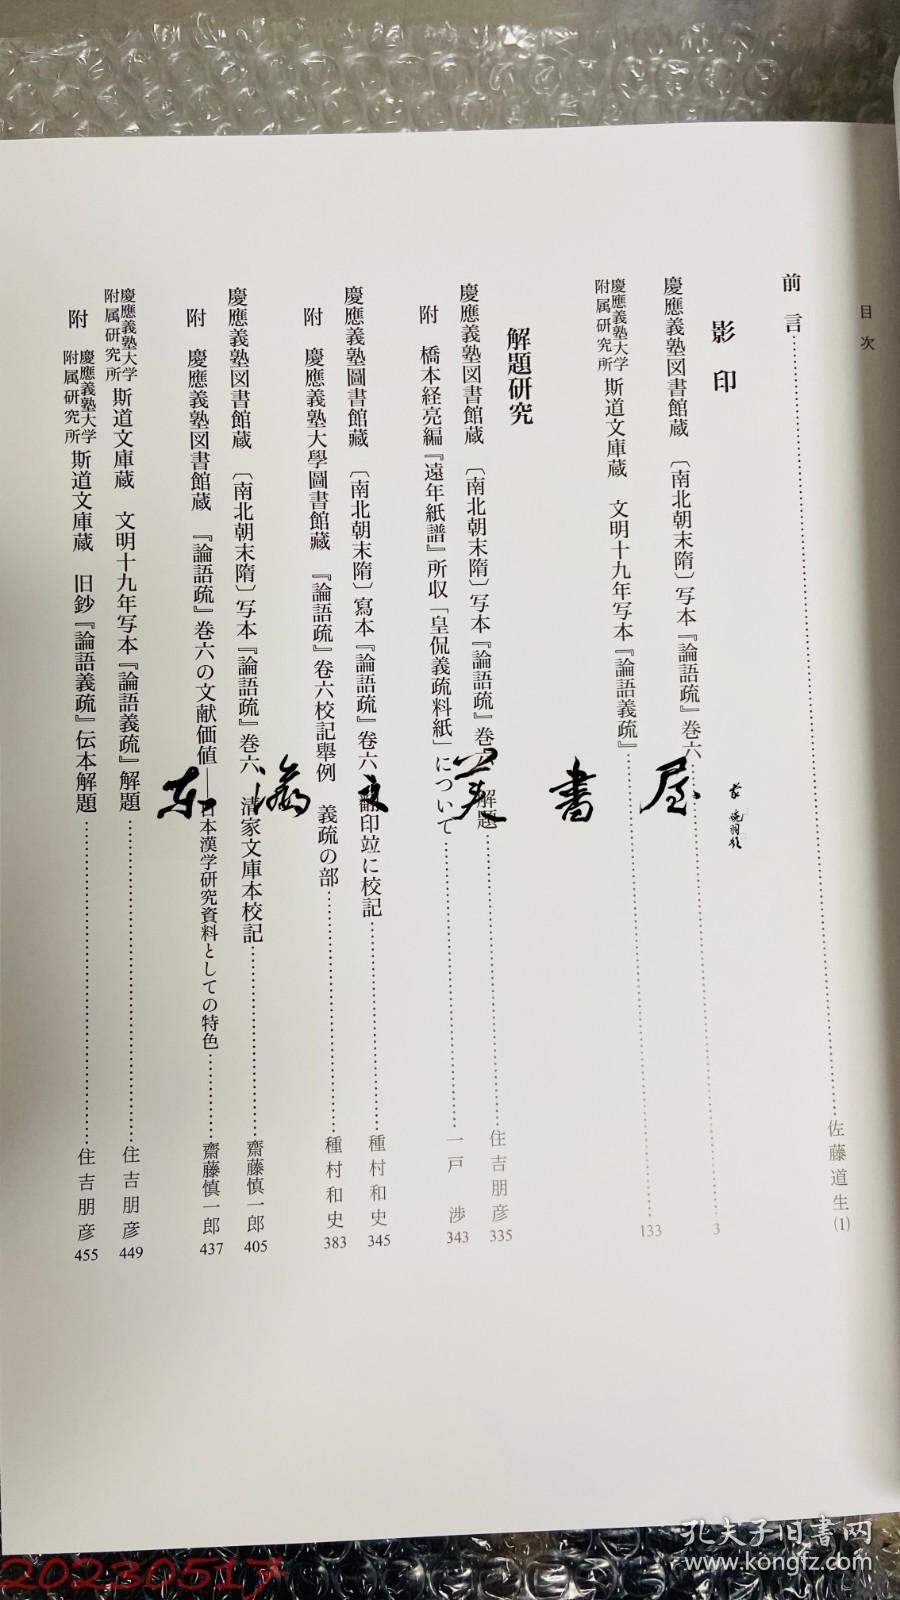 目次
前言 佐藤道生 (1)
影印
慶應義塾図書館蔵 〔南北朝末隋〕写本『論語疏』巻六 3
慶應義塾大学附属研究所 斯道文庫蔵 文明十九年写本『論語義疏』 133
解題研究
慶應義塾図書館蔵 〔南北朝末隋〕写本『論語疏』巻 解題 住吉朋彦 335
附 橋本経亮編『遠年紙譜』所収「皇侃義疏料紙」について 一戸渉 343
慶應義塾圖書館藏 〔南北朝末隋〕寫本『論語疏』卷六 翻印竝に校記 種村和史 345
附 慶應義塾大學圖書館藏 『論語疏』卷六校記舉例 義疏の部 種村和史 383
慶應義塾図書館蔵 〔南北朝末隋〕写本『論語疏』巻六 清家文庫本校記 齋藤慎一郎 405
附 慶應義塾図書館蔵 『論語疏』巻六の文献価値――日本漢学研究資料としての特色 齋藤慎一郎 437
慶應義塾大学附属研究所 斯道文庫蔵 文明十九年写本『論語義疏』解題 住吉朋彦 449
附 慶應義塾大学附属研究所 斯道文庫蔵 旧鈔『論語義疏』伝本解題 住吉朋彦 455
东瀛文美書屋
孔夫子旧書网
www.kongfz.com
20230517